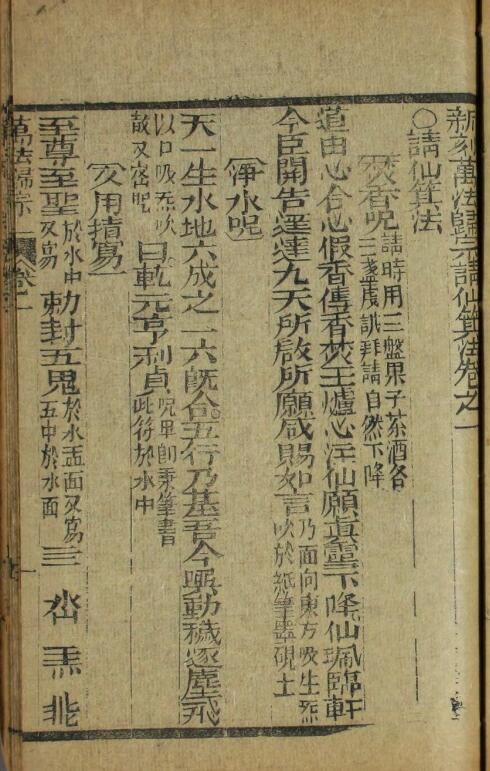 新刻萬法歸宗請仙箕法卷之一
○請仙箕法
焚香呪 請時用三盤果子茶酒各三盞虔誠拜請自然下降
道由心合心假香傳香焚玉爐心注仙願真靈下降仙珮臨軒
今臣關告逕達九天所啟所願咸賜如言 乃面向東方吸生炁吹於紙筆墨硯上
淨水呪
天一生水地六成之一六既合五行乃基吾今興動穢逐塵飛
以口吸炁吹 又密呪 曰乾元亨利貞 呪畢即秉筆書此符於水中
又用揹寫
至尊至聖 於水中又寫 勅封五鬼 於水盂面又寫五中於水面
萬法歸宗 卷一